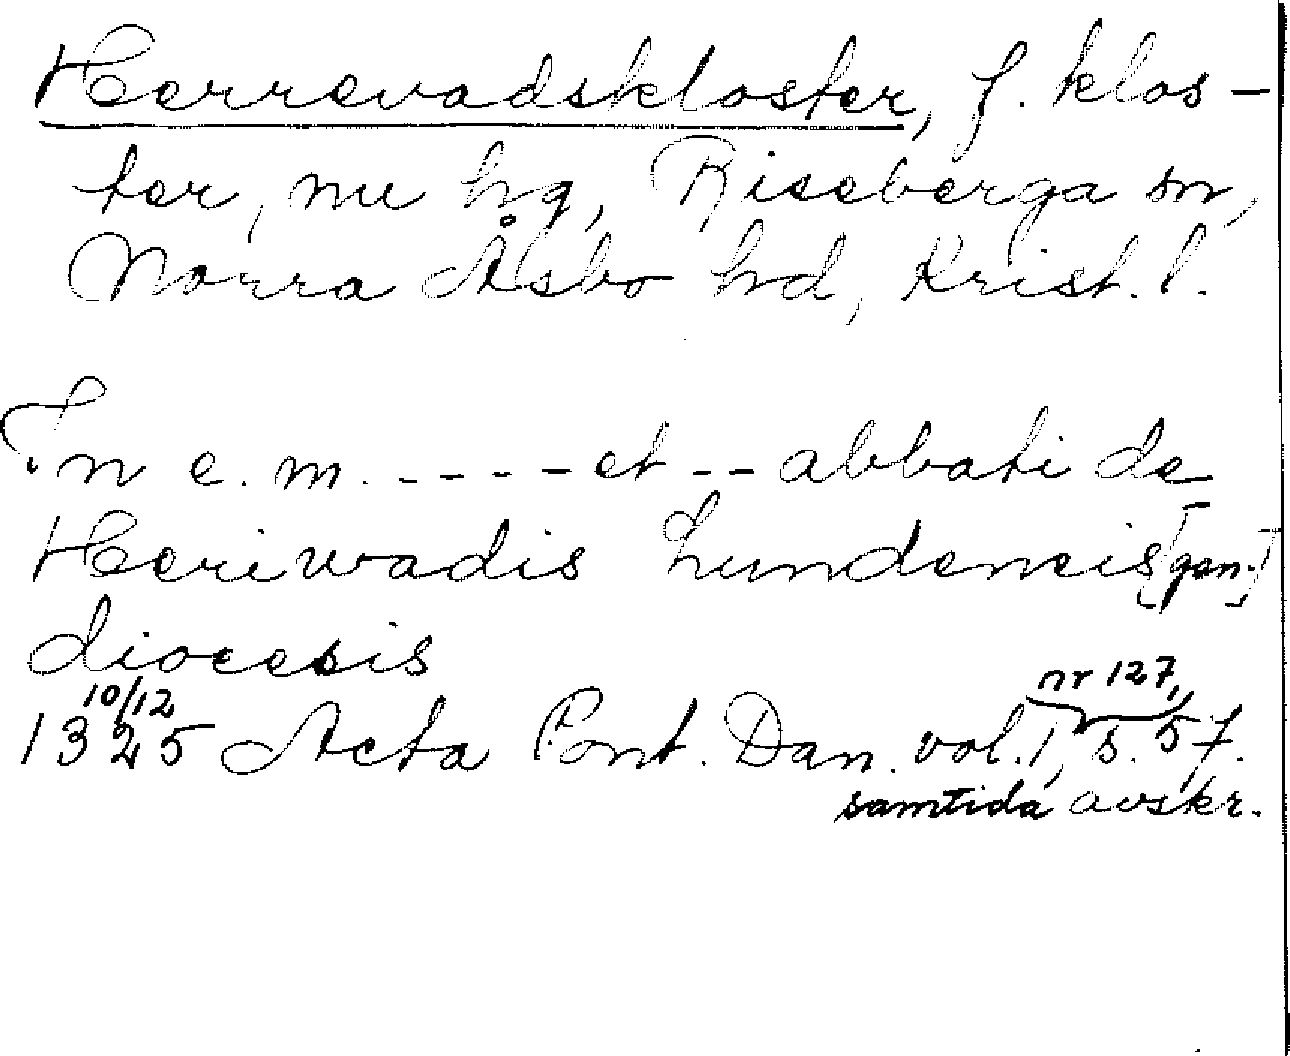 Herrevadskloster, f. klos-
ter, nu hg, Riseberga sn,
Norra Åsbo hd, Krist. l.
In e. m. ----et -- abbati de
Heriwadis Lundencis [gen.]
diocesis
10/12 nr 127,
1325 Acta Pont. Dan. vol. 1, s. 57.
samtida avskr.